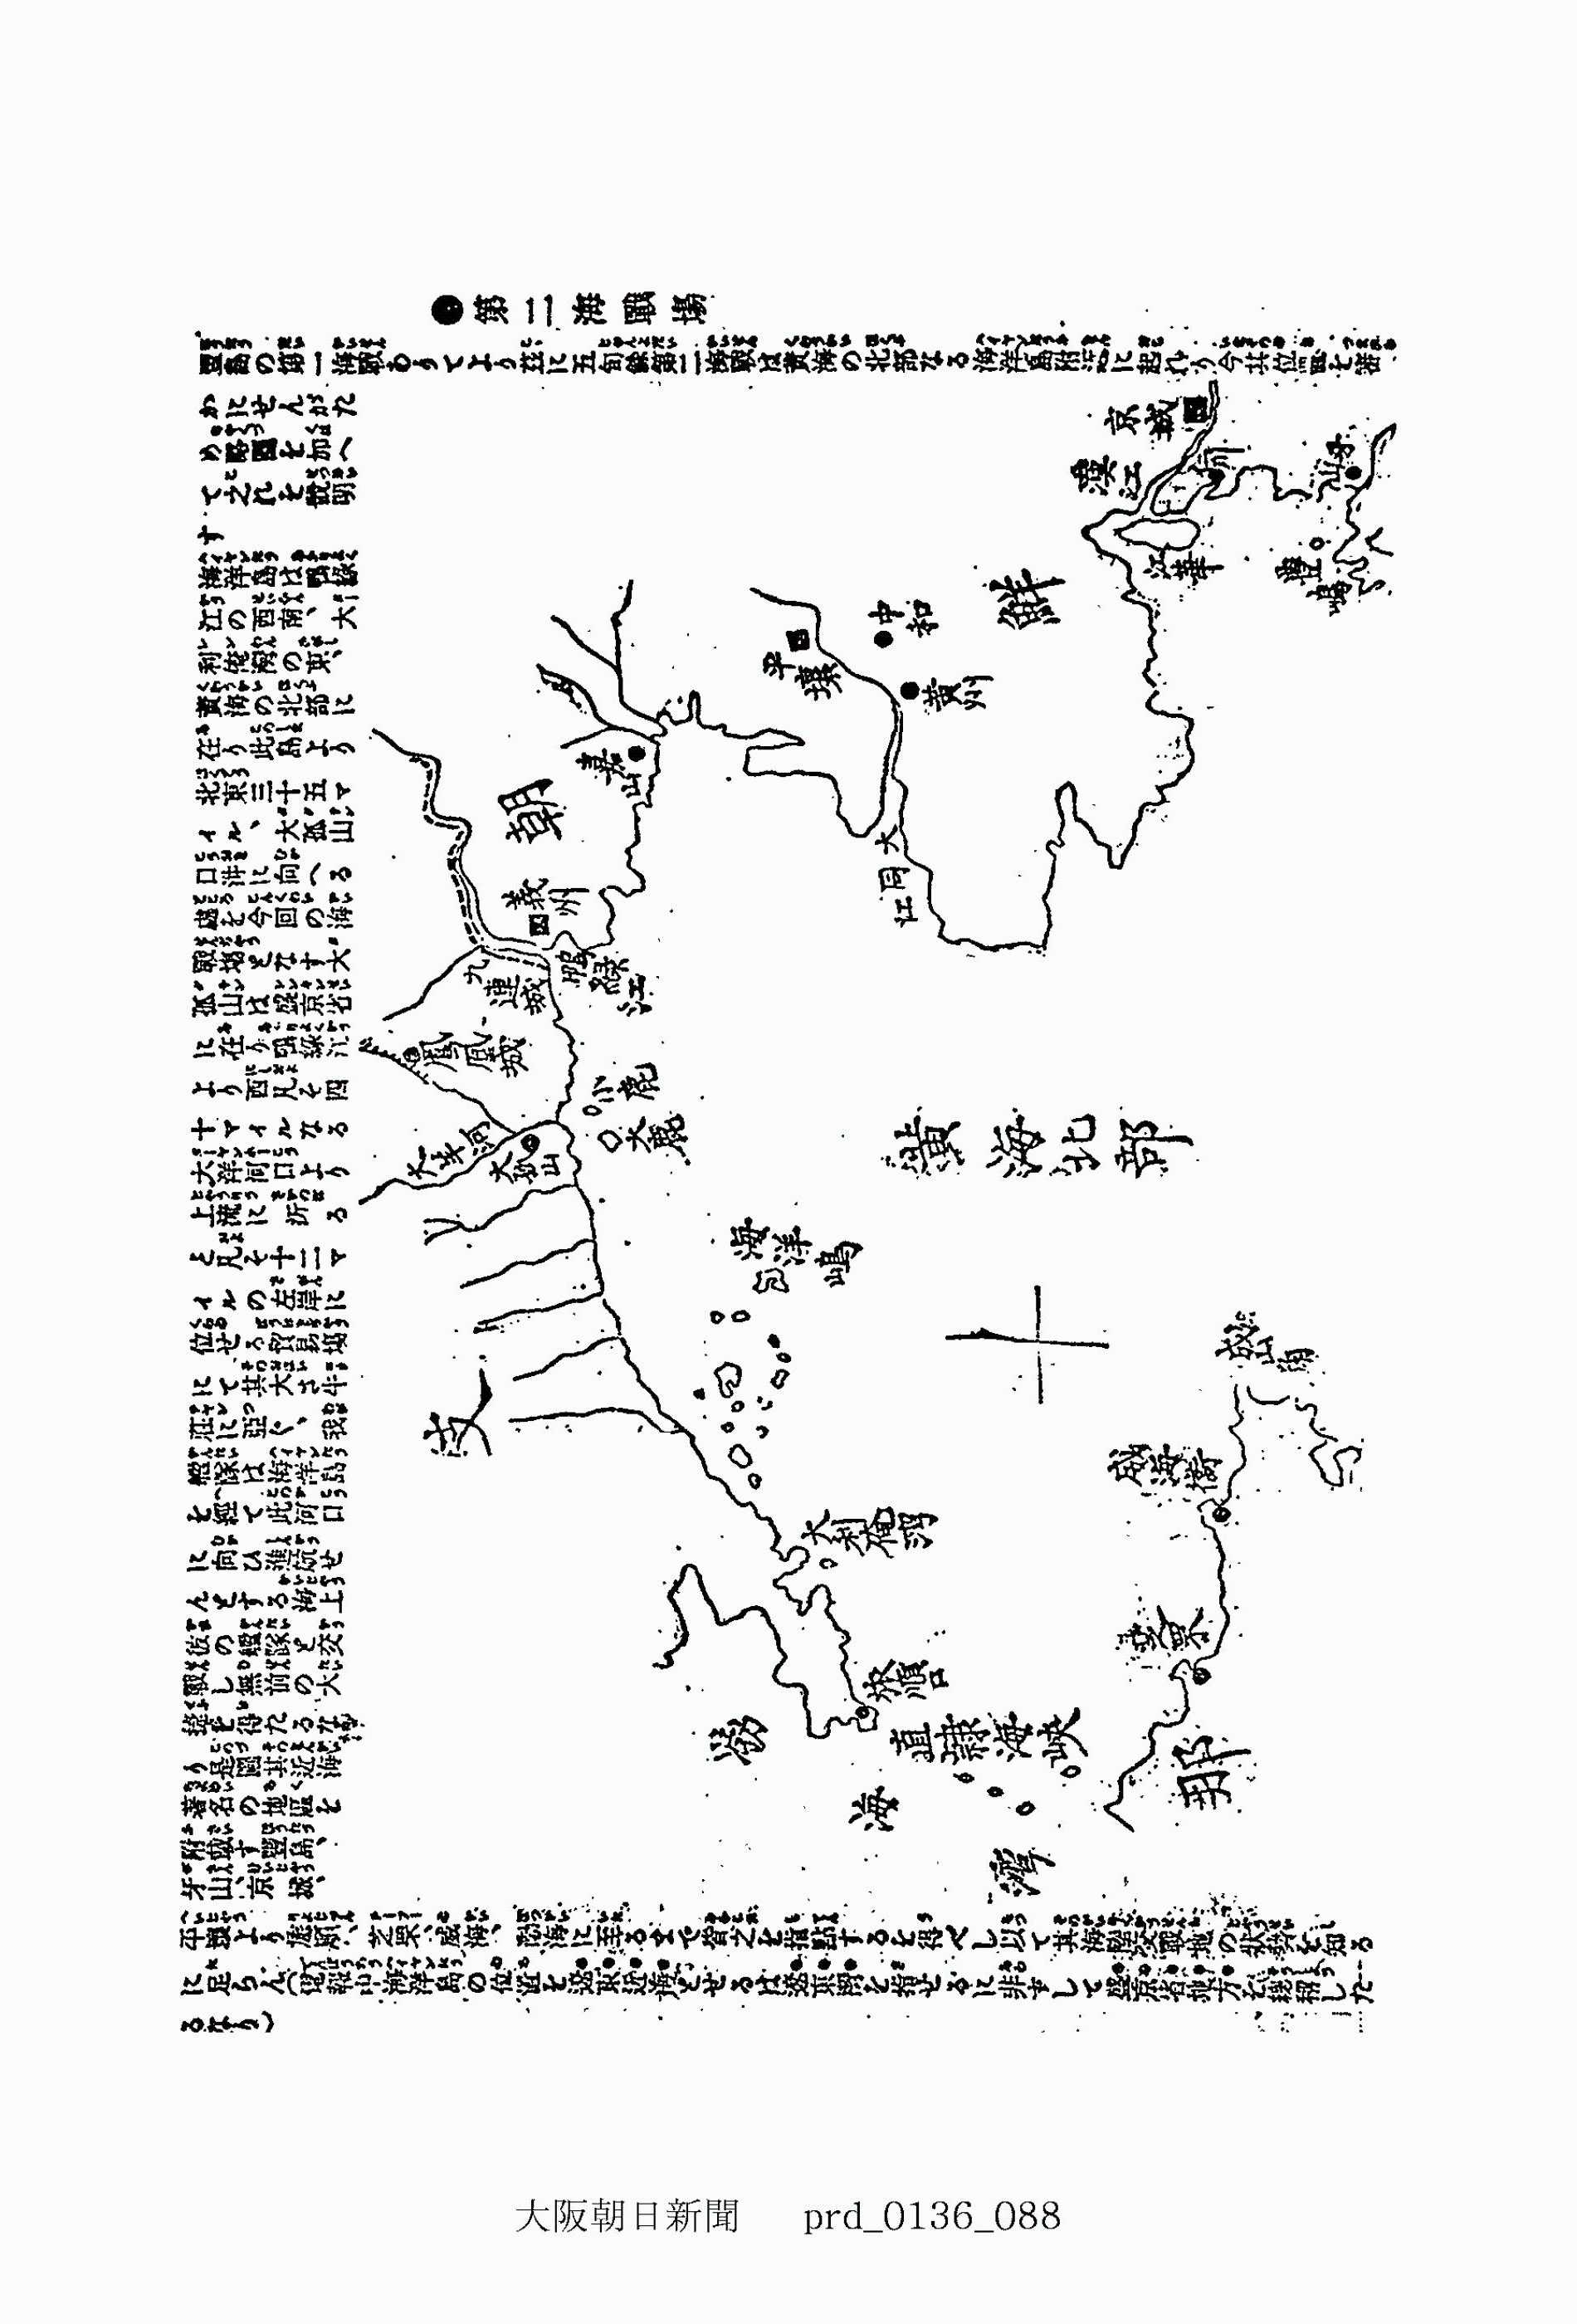 ●第二海戰場
豐島の第一海戰ありてより玆に五旬餘第二海戰は黃海の北部なる海洋島附近に起れり今其位置を詳
かにせんがた
め略圖を加へ
て之れを說明
す
海洋島は鴨綠
江の西南、大
利俺灣の東、
黃海の北部に
在り此島より
北東三十五マ
イル、大孤山
口沖に向へる
處を今回の海
戰場となす大
孤山は盛京省
に在り鴨綠江
より西凡そ四
十マイルなる
大洋河口より
上流に泝る
と凡そ十二マ
イルの左岸に
位せる貿易場
にて其大さ牛
莊に亞ぐ、我
艦隊は海洋島
を經て此河口
に向ひ進航せ
んとする海上
彼の艦隊と交
戰し無前の大
捷を得たるな
り是圖其近海
著名の地區を
附載す豐島、
牙山、京城、
平壤より旅順、芝罘、威海、渤海に至るまで皆之を指點するを得べし以て其海陸交戰地の狀勢を知る
に足らん(電報中海洋島の位置を遼東近海とせるは遼東灣を指せるに非ずして盛京省地方を總稱した
るなり)
京城
漢江
仁川
牙山
江華
豐嶋
朝
鮮
中和
平壤
黃州
大同江
嘉山
義州
鴨綠江
九連城
鳳凰城
小鹿
大鹿
大洋河
大孤山
黃海北部
海洋嶋
支
那
成山角
威海衛
芝罘
大利俺灣
旅順口
直隷海峽
渤海灣
大阪朝日新聞 prd_0136_088